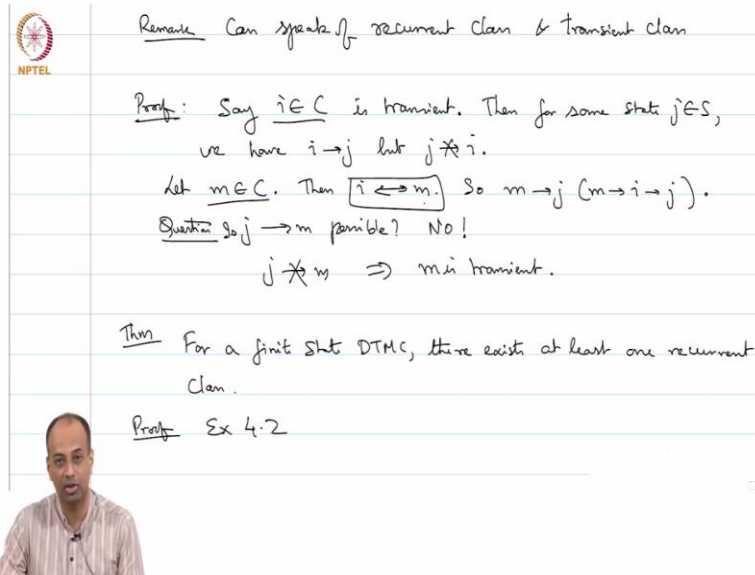 NPTEL
Remark Can speak of recurrent class & transient class
Proof: Say i ∈ C is transient. Then for some state j ∈ S,
we have i → j but j ↛ i.
Let m ∈ C. Then i ↔ m. So m → j (m → i → j).
Question Is j → m possible? NO!
j ↛ m ⇒ m is transient.
Thm For a finite state DTMC, there exists at least one recurrent
class.
Proof Ex 4.2